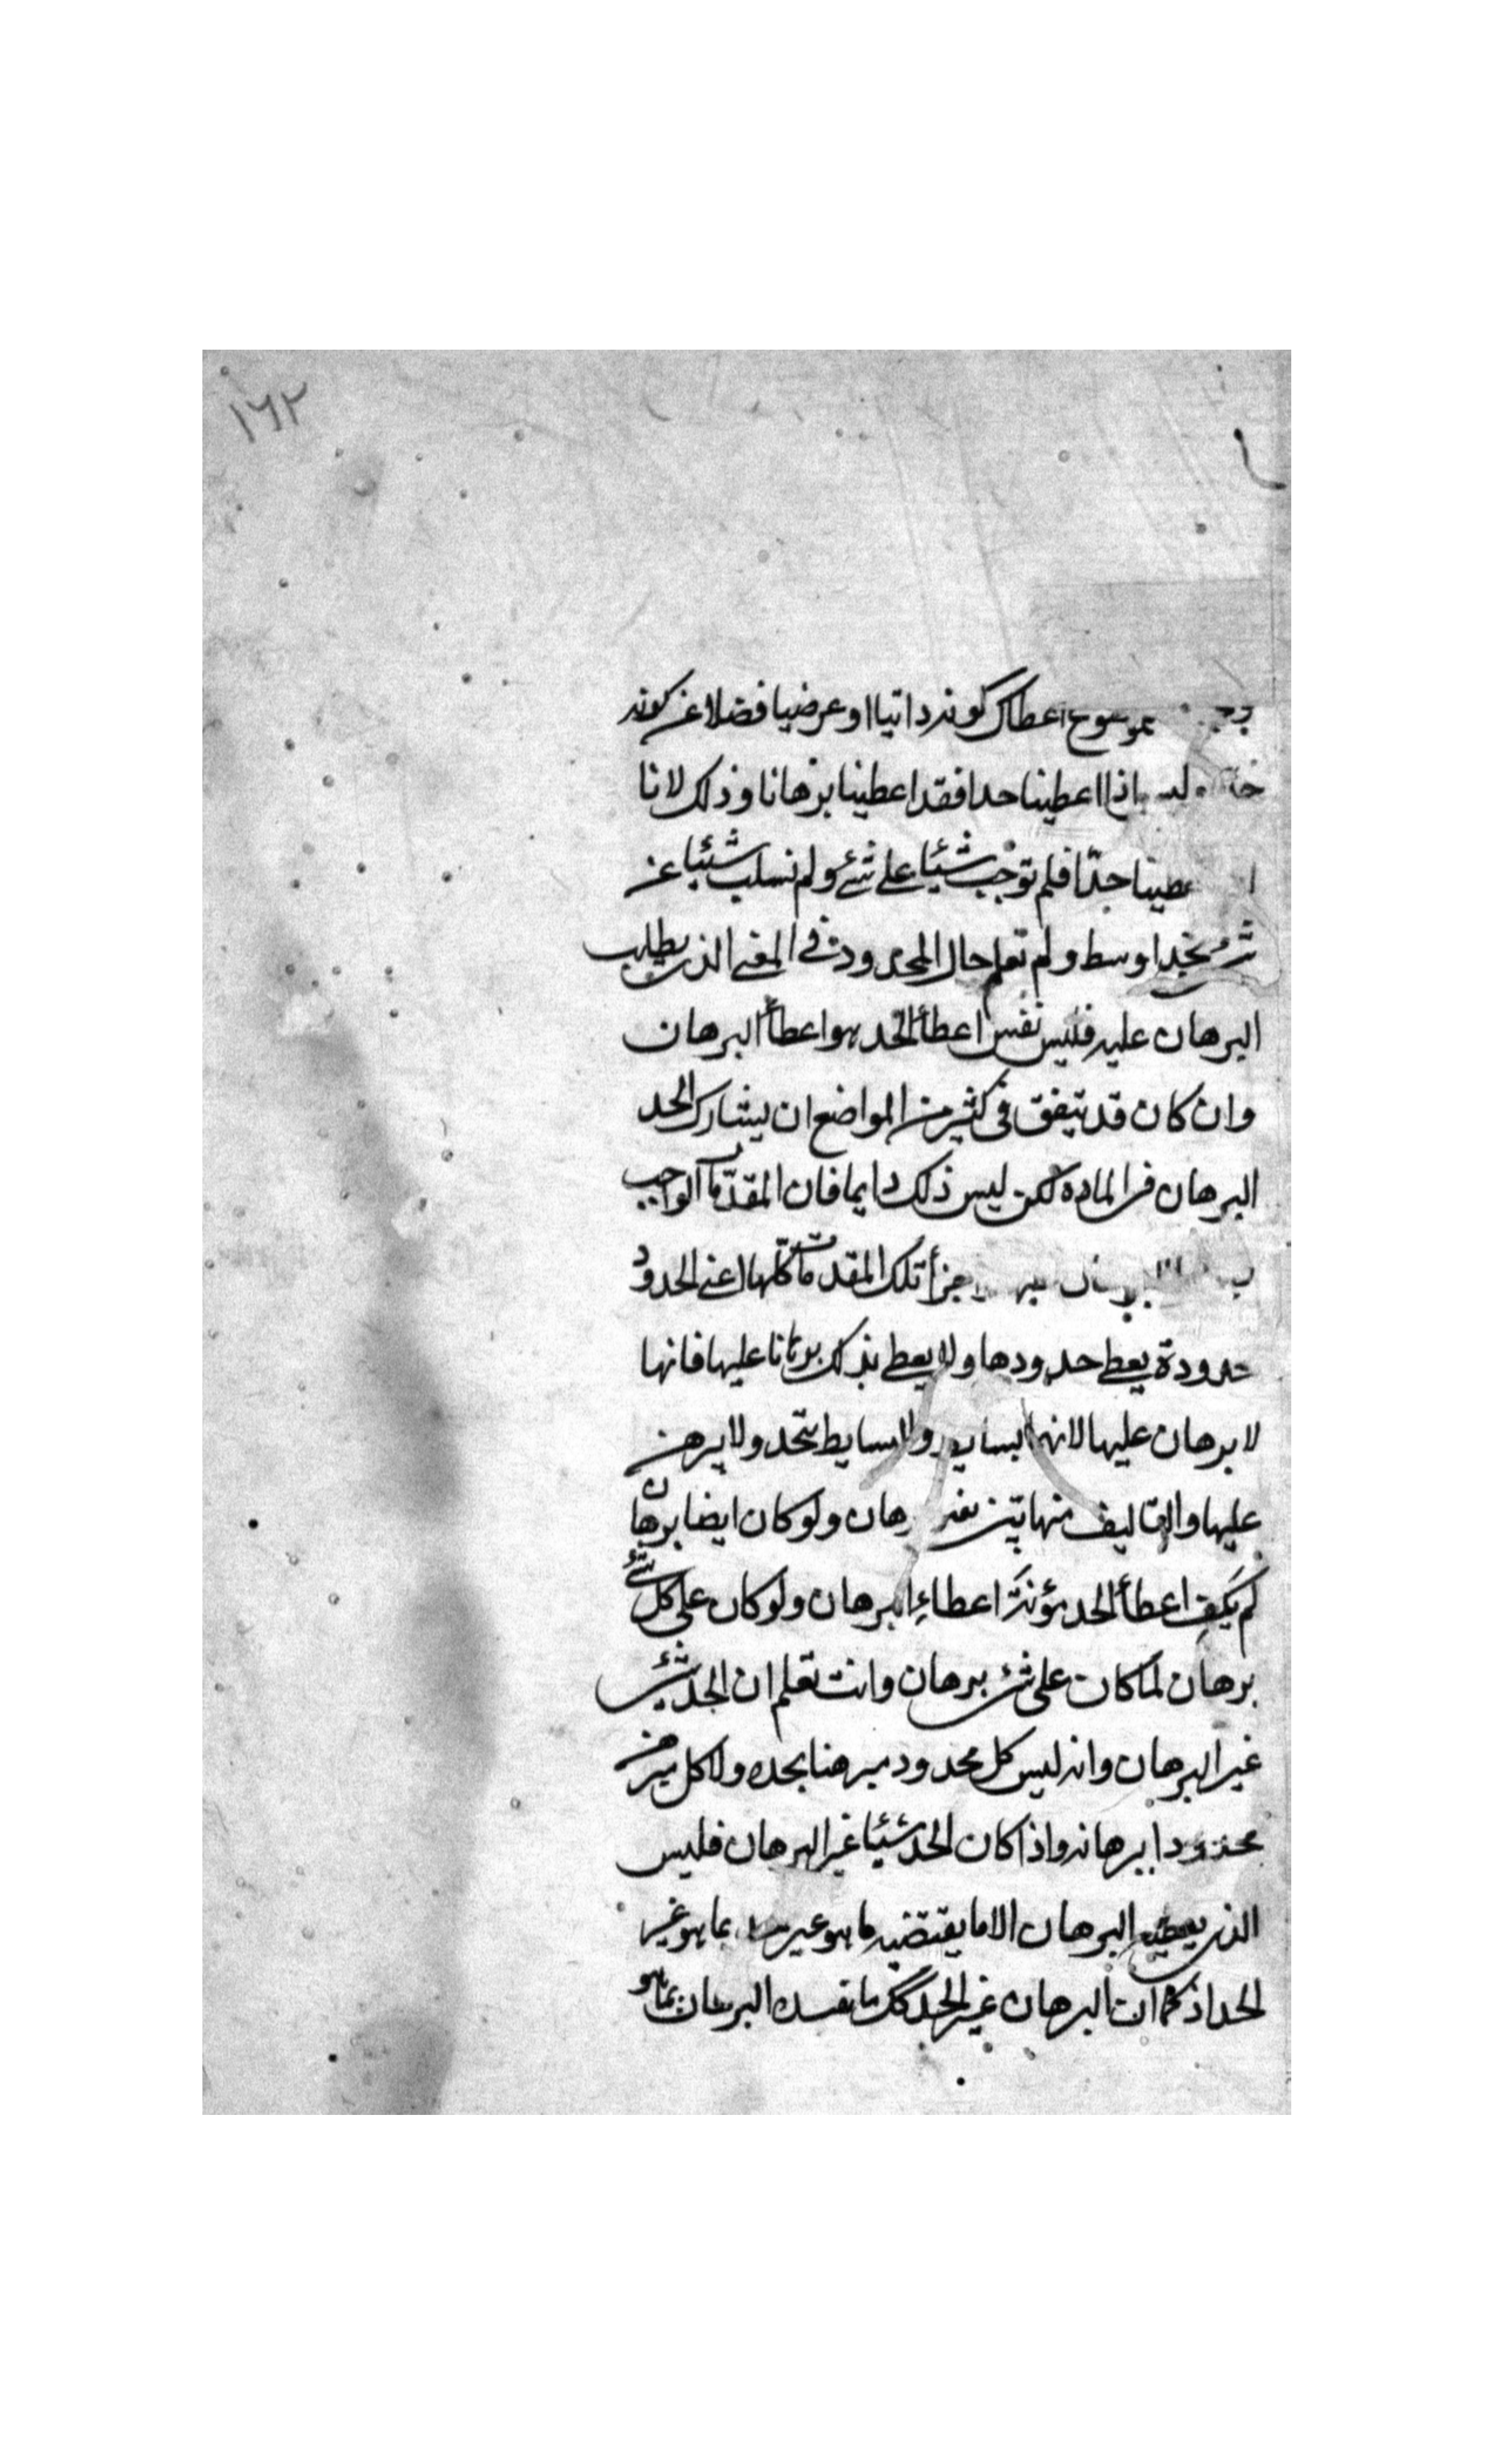 ١٦٢
موضوع اعطاك كونه ذاتيا او عرضيا فضلا عن كونه
اذا اعطينا حدا فقد اعطينا برهانا وذلك لانا
عطينا حدّا فلم نوجب شيئا على شئ ولم نسلب شيئا عن
شئ بحد اوسط ولم نعلم حال المحدود في المعنى الذي يطلب
البرهان عليه فليس نفس اعطأ الحد هو اعطأ البرهان
وان كان قد يتفق في كثير من المواضع ان يشارك الحد
البرهان في الماده لكن ليس ذلك دايما فان المقدّمات الواجب
اجزأ تلك المقدمات كلها اعني الحدود
حدودة يعطى حدودها ولا يعطى بذلك برهانا عليها فانها
لا برهان عليها لانها بسايط والبسايط تحد ولا يبرهن
عليها والتاليف منها بين بغير برهان ولو كان ايضا برهان
لم يكف اعطأ الحد مؤنة اعطاء البرهان ولو كان على كل شئ
برهان لما كان على شئ برهان وانت تعلم ان الحد شئ
غير البرهان وانه ليس كل محدود مبرهنا بحده ولا كل مبرهن
محدودا ببرهانه واذا كان الحد شيئا غير البرهان فليس
الذي يعطيه البرهان الا ما يقتضيه ما هو غير بما هو غير
الحد اذ كما ان البرهان غير الحد كك ما نفسده البرهان بما هو